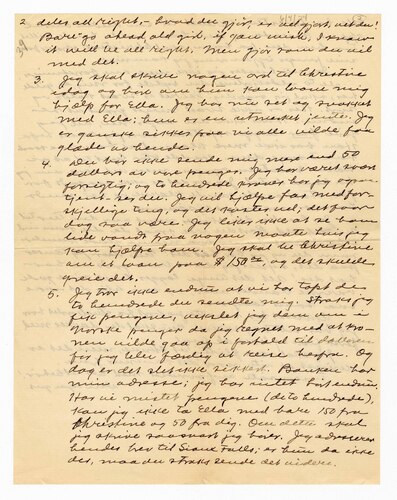 2. deles all right, - hvad du gjør, er vel gjort, vet du!
Bare go ahead, old girl, if you wish, I know
it will be all right. Men gjør som du vil
med det.
3. Jeg skal skrive nogen ord til Christine
idag og hør om hun kan laane mig
hjælp for Ella. Jeg har nu set og snakket
med Ella; hun er en utmerket jente. Jeg
er ganske sikker paa vi alle vilde faa
glæde av hende.
4. Du bør ikke sende mig mere end 50
dollars av vore penger. Jeg har været svær
forsigtig; og to hundrede kroner har jeg
tjent der. Jeg vil hjælpe Far med for-
skjellige ting, og det koster vel; det faar
dog saa være. Jeg liker ikke at se ham
lide vondt paa nogen maate hvis jeg
kan hjælpe ham. Jeg skal be Christine
om et laan paa $150.00 og det skulde
greie det.
5. Jeg tror ikke endnu at vi har tapt de
to hundrede du sendte mig. Straks jeg
fik pengene, vekslet jeg dem om i
Norske penger da jeg regnet med at Kro-
nen vilde gaa op i forhold til dollaren
før jeg blev færdig at reise herfra. Og
dag er det slet ikke sikkert. Banken har
min adresse; jeg har intet hørt endnu.
Har vi mistet pengene (de to hundrede),
kan jeg ikke ta Ella med bare 150 fra
Christine og 50 fra dig. Om dette skal
jeg skrive saasnart jeg hører. Jeg adresserer
hendes brev til Sioux Falls; er hun da ikke
der, maa du straks sende det videre.